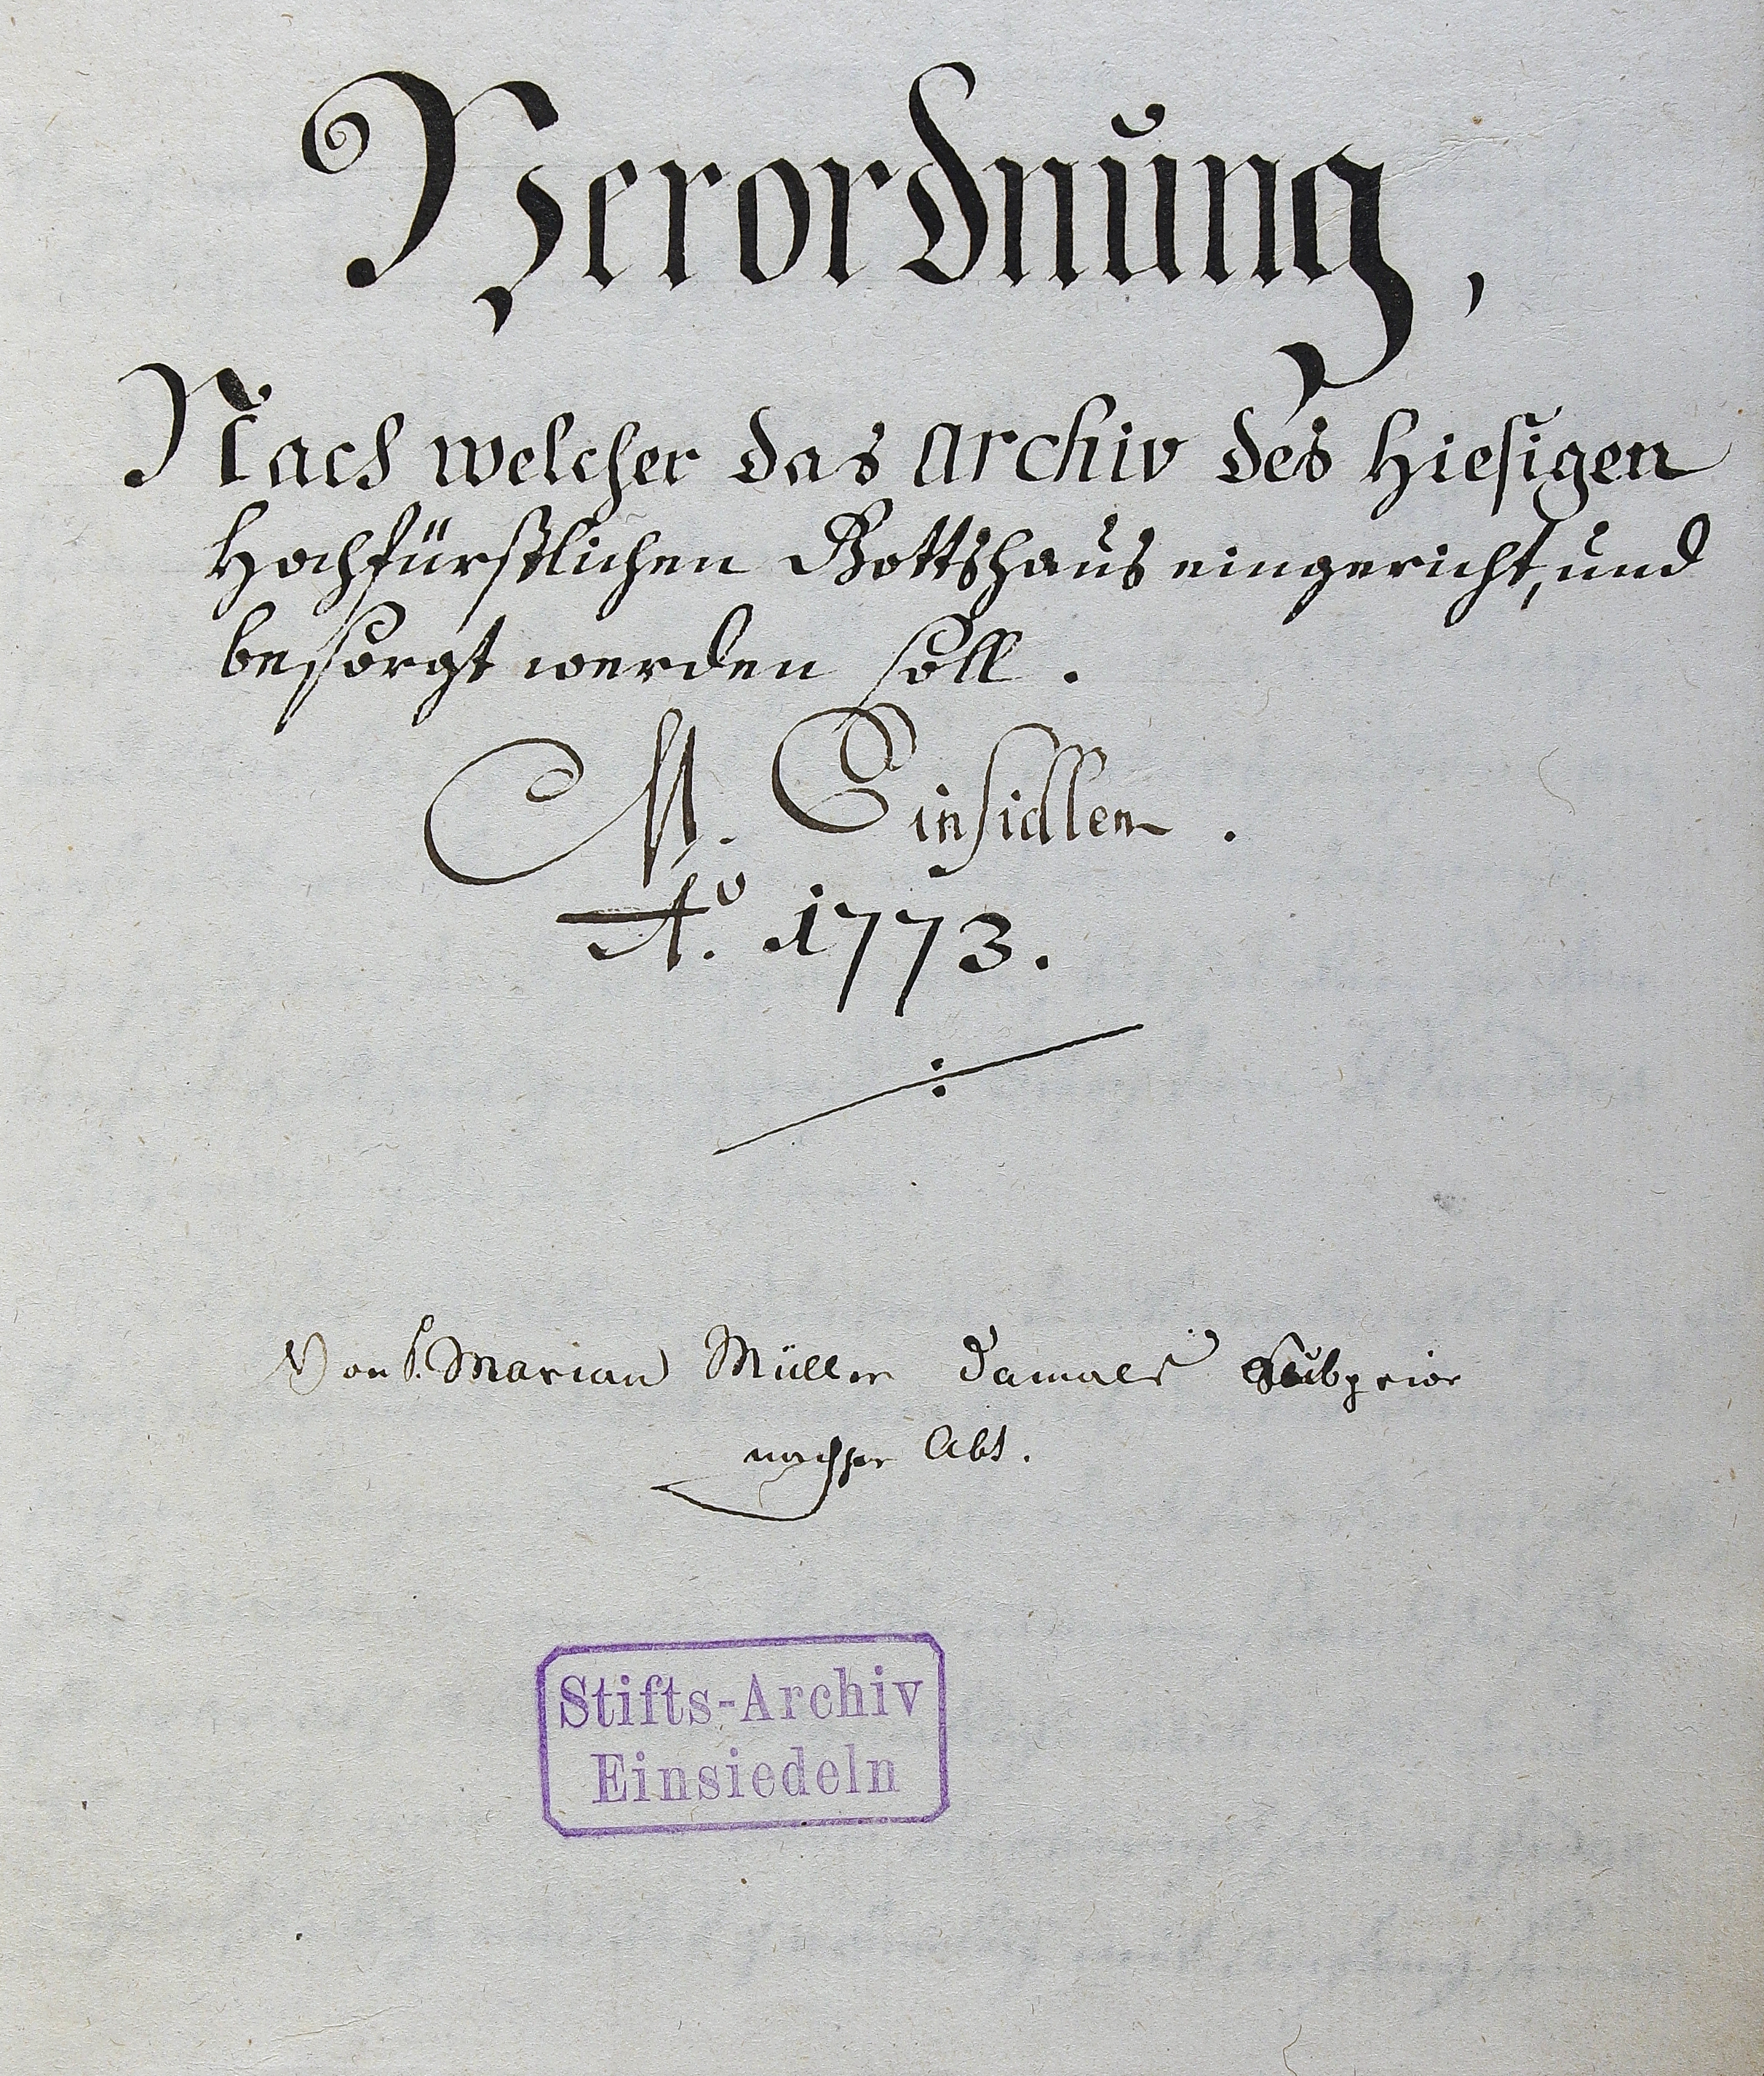 Verordnung,
Nach welcher das Archiv des Hiesigen
Hochfürstlichen Gottshaus eingericht, und
besorgt werden soll.
M. Einsidlen.
Aº. 1773.
Von P. Marian Müller damals Subprior
nachher Abt.
Stifts-Archiv
Einsiedeln